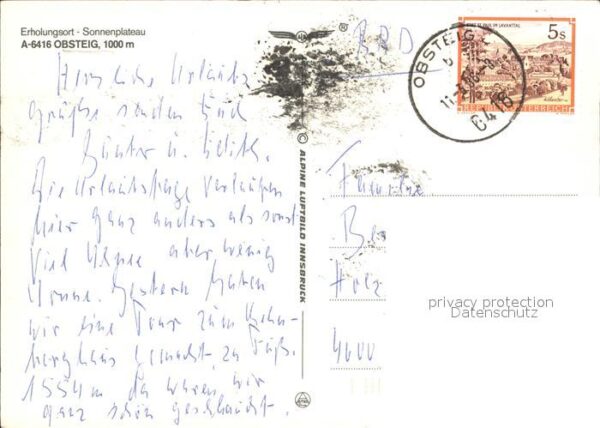 Erholungsort · Sonnenplateau
A-6416 OBSTEIG, 1000 m
Herzliche Urlaubs
grüße senden Euch
Günter u. Edith.
Die Urlaubstage verlaufen
hier ganz anders als sonst
viel Regen aber wenig
Sonne. Gestern haben
wir eine Tour zum
gemacht, zu Fuß.
1554m da waren wir
ganz schön geschlaucht.
ALPINE LUFTBILD INNSBRUCK
BRD
OBSTEIG
6416
5s
STIFT ST. PAUL IM LAVANTTAL
REPUBLIK ÖSTERREICH
Familie
Be
Holz
4000
privacy protection
Datenschutz